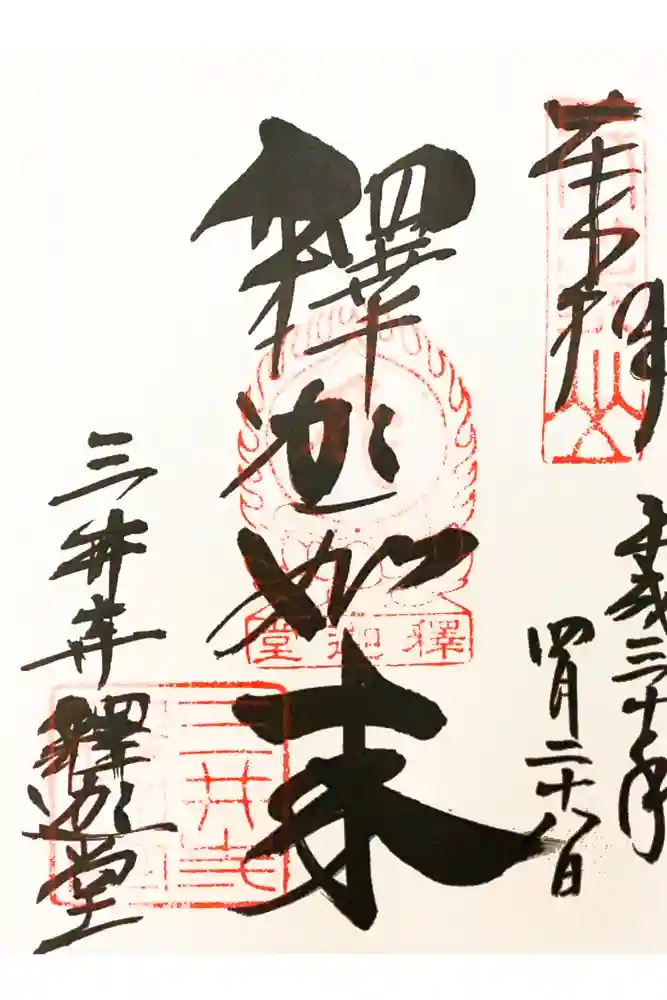 奉拝
平成三十年
四月二十八日
釋迦如来
釋迦堂
三井寺
釋迦堂
三井寺